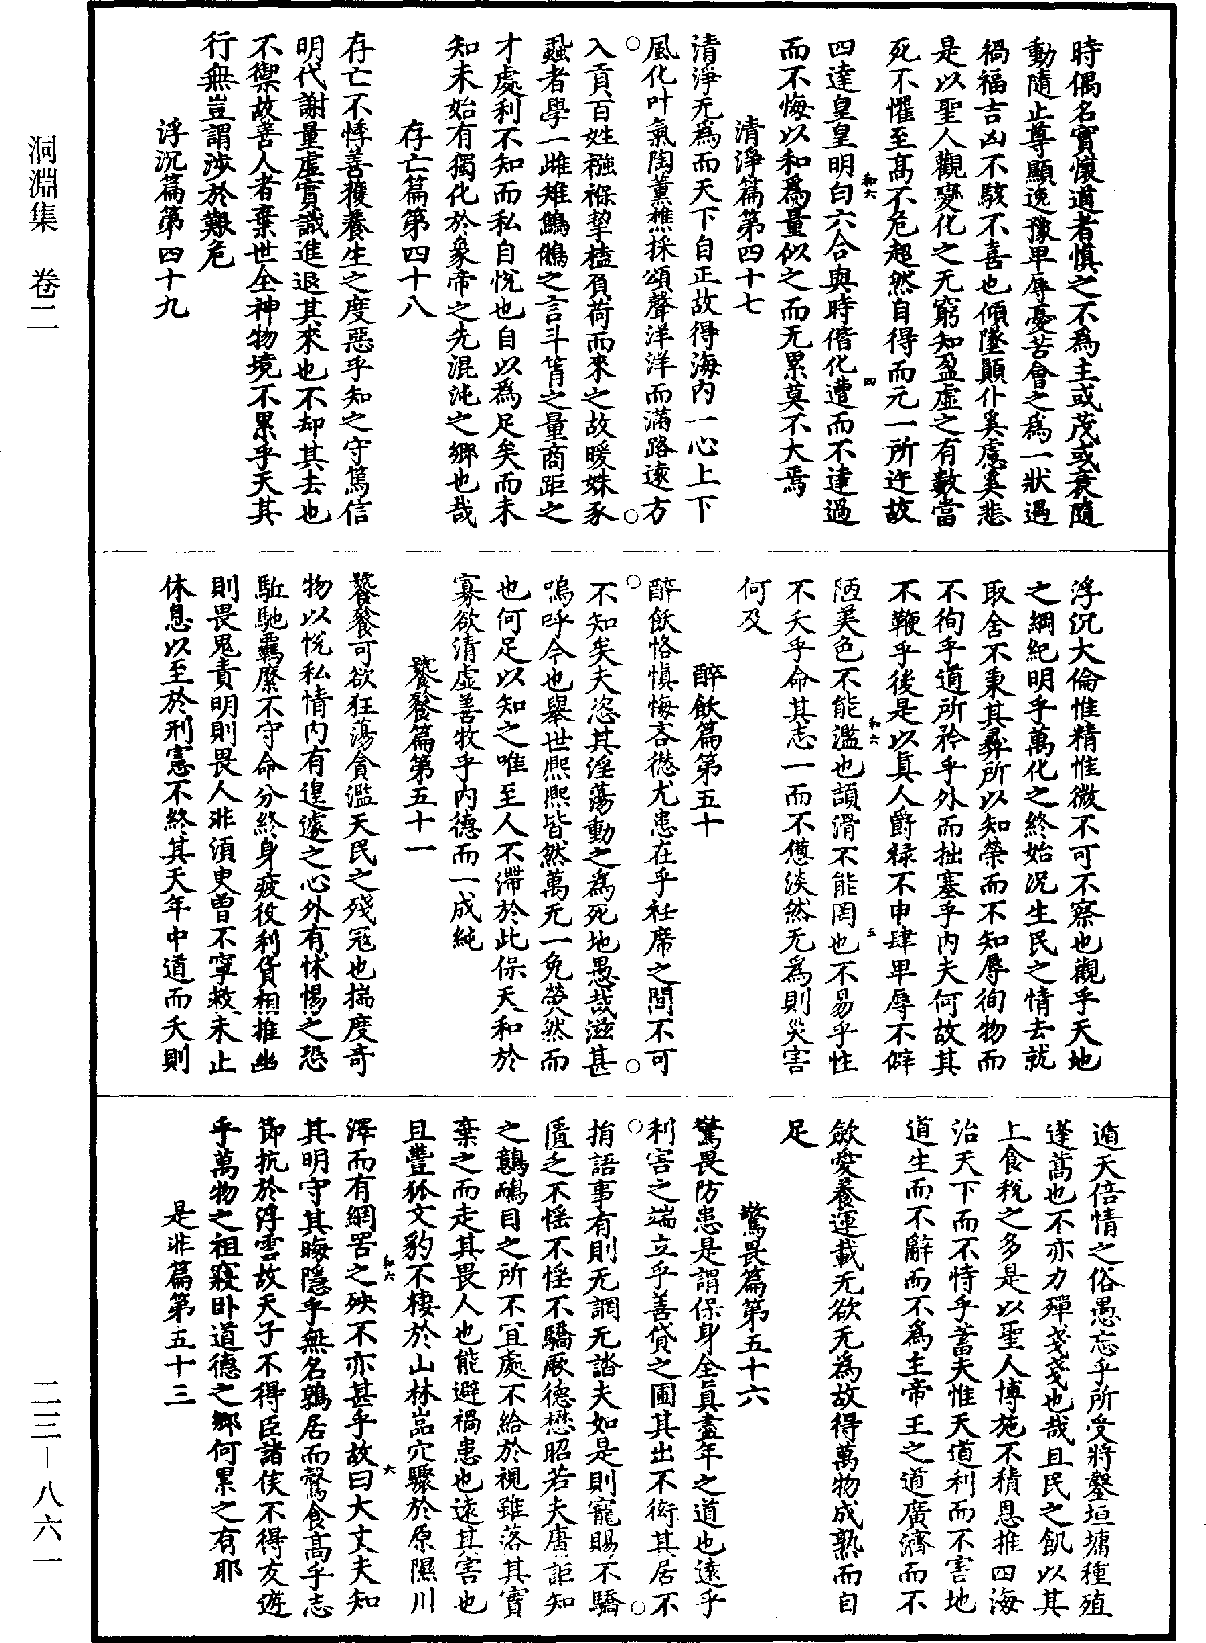 時偶名實懷道者慎之不為主或茂或衰隨
動隨止尊顯逸豫卑辱憂苦會之為一狀遇
禍福吉凶不駭不喜也傾墜顛仆奚慮奚悲
是以聖人觀變化之无窮知盈虛之有數當
死不懼至高不危超然自得而元一所迕故
四達皇皇明白六合與時偕化遭而不違過
而不悔以和為量似之而无累莫不大焉
清淨篇第四十七
清淨无為而天下自正故得海內一心上下
風化叶氣陶薰樵採頌聲洋洋而滿路遠方
入貢百姓襁褓挈榼負荷而來之故暖姝豕
蝨者學一雌雄鷦鷯之言斗筲之量商距之
才處利不知而私自悅也自以為足矣而未
知未始有獨化於象帝之先混沌之鄉也哉
存亡篇第四十八
存亡不悖善獲養生之度惡乎知之守篤信
明代謝量虛實識進退其來也不却其去也
不禦故善人者棄世全神物境不累乎天其
行無豈謂涉於艱危
浮沉篇第四十九
浮沉大倫惟精惟微不可不察也觀乎天地
之綱紀明乎萬化之終始況生民之情去就
取舍不秉其彝所以知榮而不知辱徇物而
不徇乎道所矜乎外而拙塞乎內夫何故其
不鞭乎後是以真人爵祿不申肆卑辱不僻
陋美色不能濫也頡滑不能罔也不易乎性
不夭乎命其志一而不僡淡然无為則災害
何及
醉飲篇第五十
醉飲恪慎悔吝愆尤患在乎衽席之間不可
不知矣夫恣其淫蕩動之為死地愚哉滋甚
嗚呼今也舉世熙熙皆然萬无一免熒然而
也何足以知之唯至人不滯於此保天和於
寡欲清虛善牧乎內德而一成純
饕餮篇第五十一
饕餮可欲狂蕩貪濫天民之殘寇也揣度奇
物以悅私情內有遑遽之心外有怵惕之恐
駈馳羈縻不守命分終身疲役利貨相推幽
則畏鬼責明則畏人非須臾曾不寧救未止
休息以至於刑憲不終其天年中道而夭則
遁天倍情之俗愚忘乎所受將鑿垣墉種殖
蓬蒿也不亦力殫戔戔也哉且民之飢以其
上食稅之多是以聖人博施不積恩推四海
治天下而不恃乎蓄夫惟天道利而不害地
道生而不辭而不為主帝王之道廣濟而不
斂愛養運載无欲无為故得萬物成熟而自
足
驚畏篇第五十六
驚畏防患是謂保身全真盡年之道也遠乎
利害之端立乎善貸之圃其出不衒其居不
捐語事有則无調无諮夫如是則寵賜不驕
匱乏不慆不悭不驕厥德懋昭若夫唐詎知
之鷾鴯目之所不宜處不給於視雖落其實
棄之而走其畏人也能避禍患也遠其害也
且豐狐文豹不棲於山林嵓穴驟於原隰川
澤而有網罟之殃不亦甚乎故曰大丈夫知
其明守其晦隱乎無名鶉居而鷇食高乎志
節抗於浮雲故天子不得臣諸侯不得友遊
乎萬物之祖寢卧道德之鄉何累之有耶
是非篇第五十三
洞淵集 卷二
二三—八六一